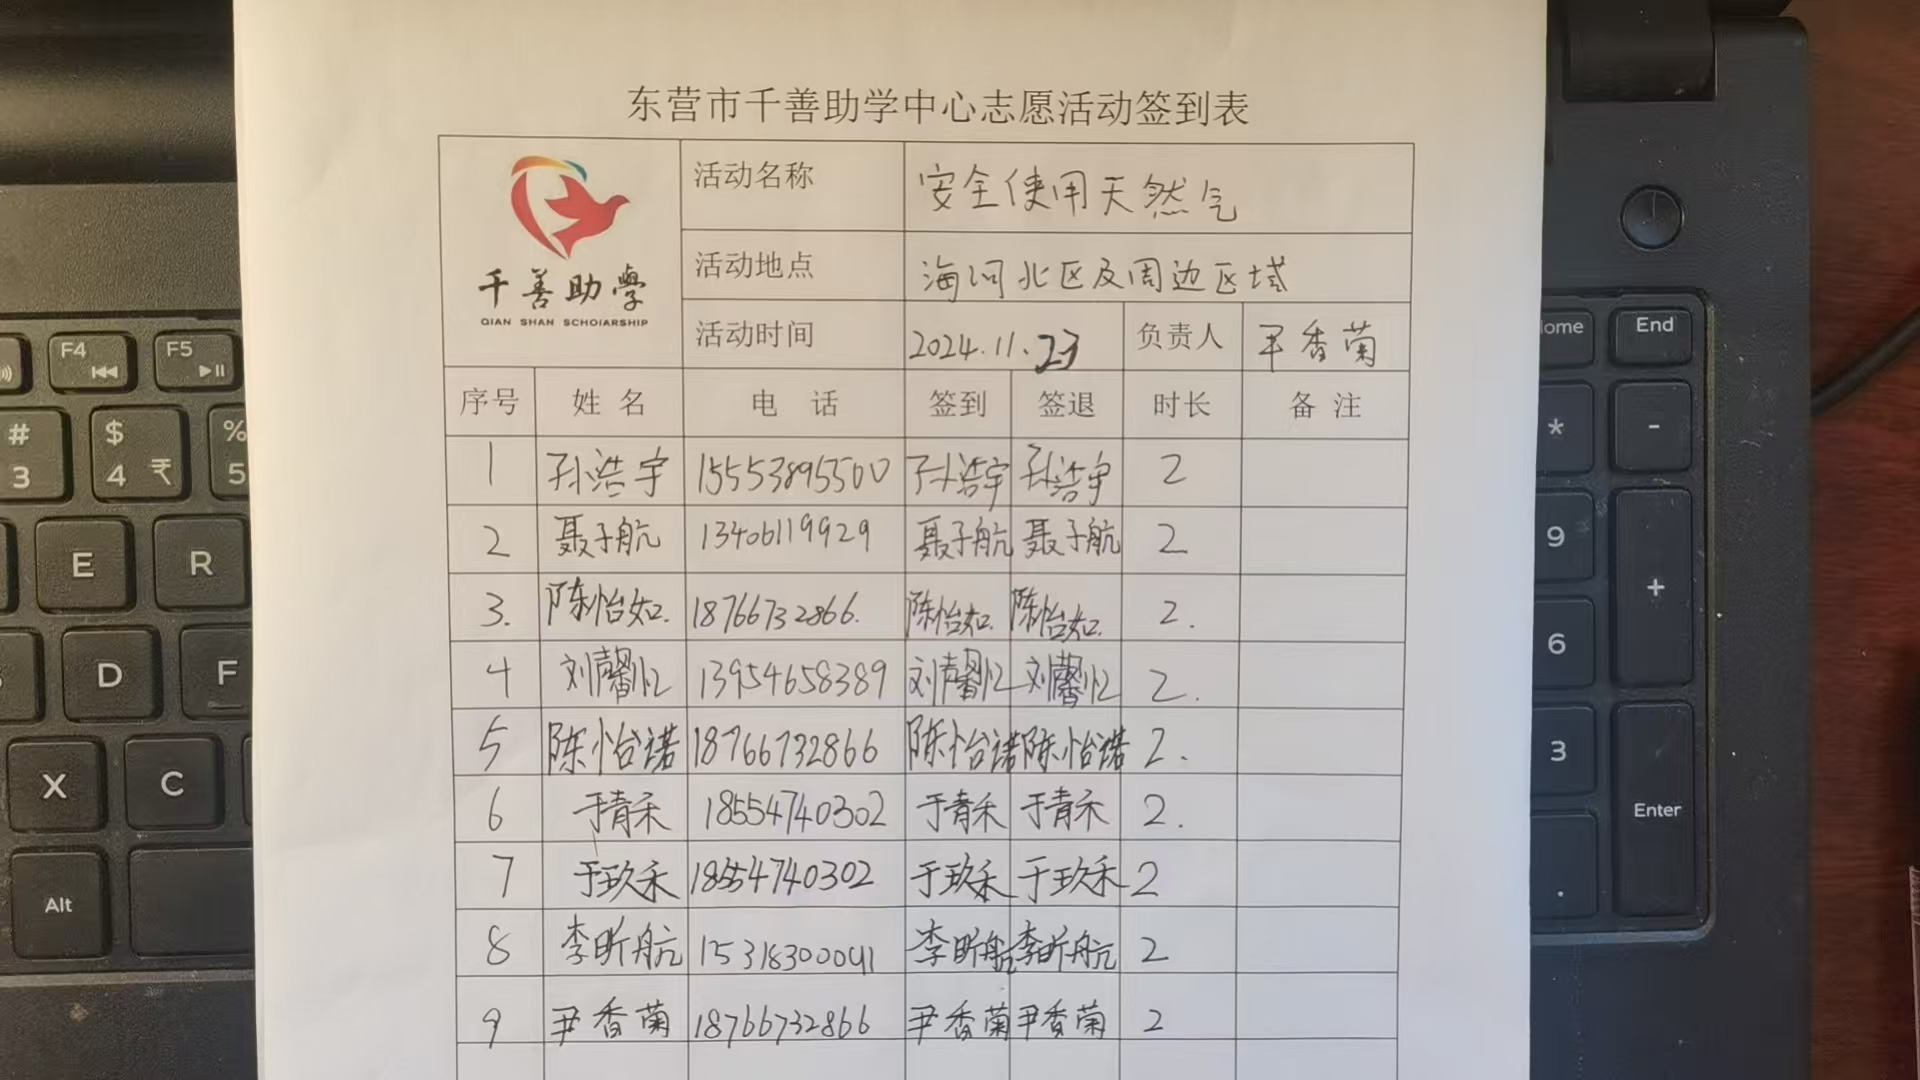 东营市千善助学中心志愿活动签到表
千善助學
QIAN SHAN SCHOIARSHIP
活动名称 安全使用天然气
活动地点 海河北区及周边区域
活动时间 2024.11.23 负责人 尹香菊
序号 姓名 电话 签到 签退 时长 备注
1 孙浩宇 15553895500 孙浩宇 孙浩宇 2
2 聂子航 13406119929 聂子航 聂子航 2
3. 陈怡如. 18766732866. 陈怡如. 陈怡如. 2.
4 刘馨忆 13954658389 刘馨忆 刘馨忆 2.
5 陈怡诺 18766732866 陈怡诺 陈怡诺 2.
6 于青禾 18554740302 于青禾 于青禾 2.
7 于玖禾 18554740302 于玖禾 于玖禾 2
8 李昕航 15318300041 李昕航 李昕航 2
9 尹香菊 18766732866 尹香菊 尹香菊 2
F4 F5
# 3 $ 4 ₹ % 5
E R
D F
X C
Alt
Home End
* -
9 +
6
3 Enter
.